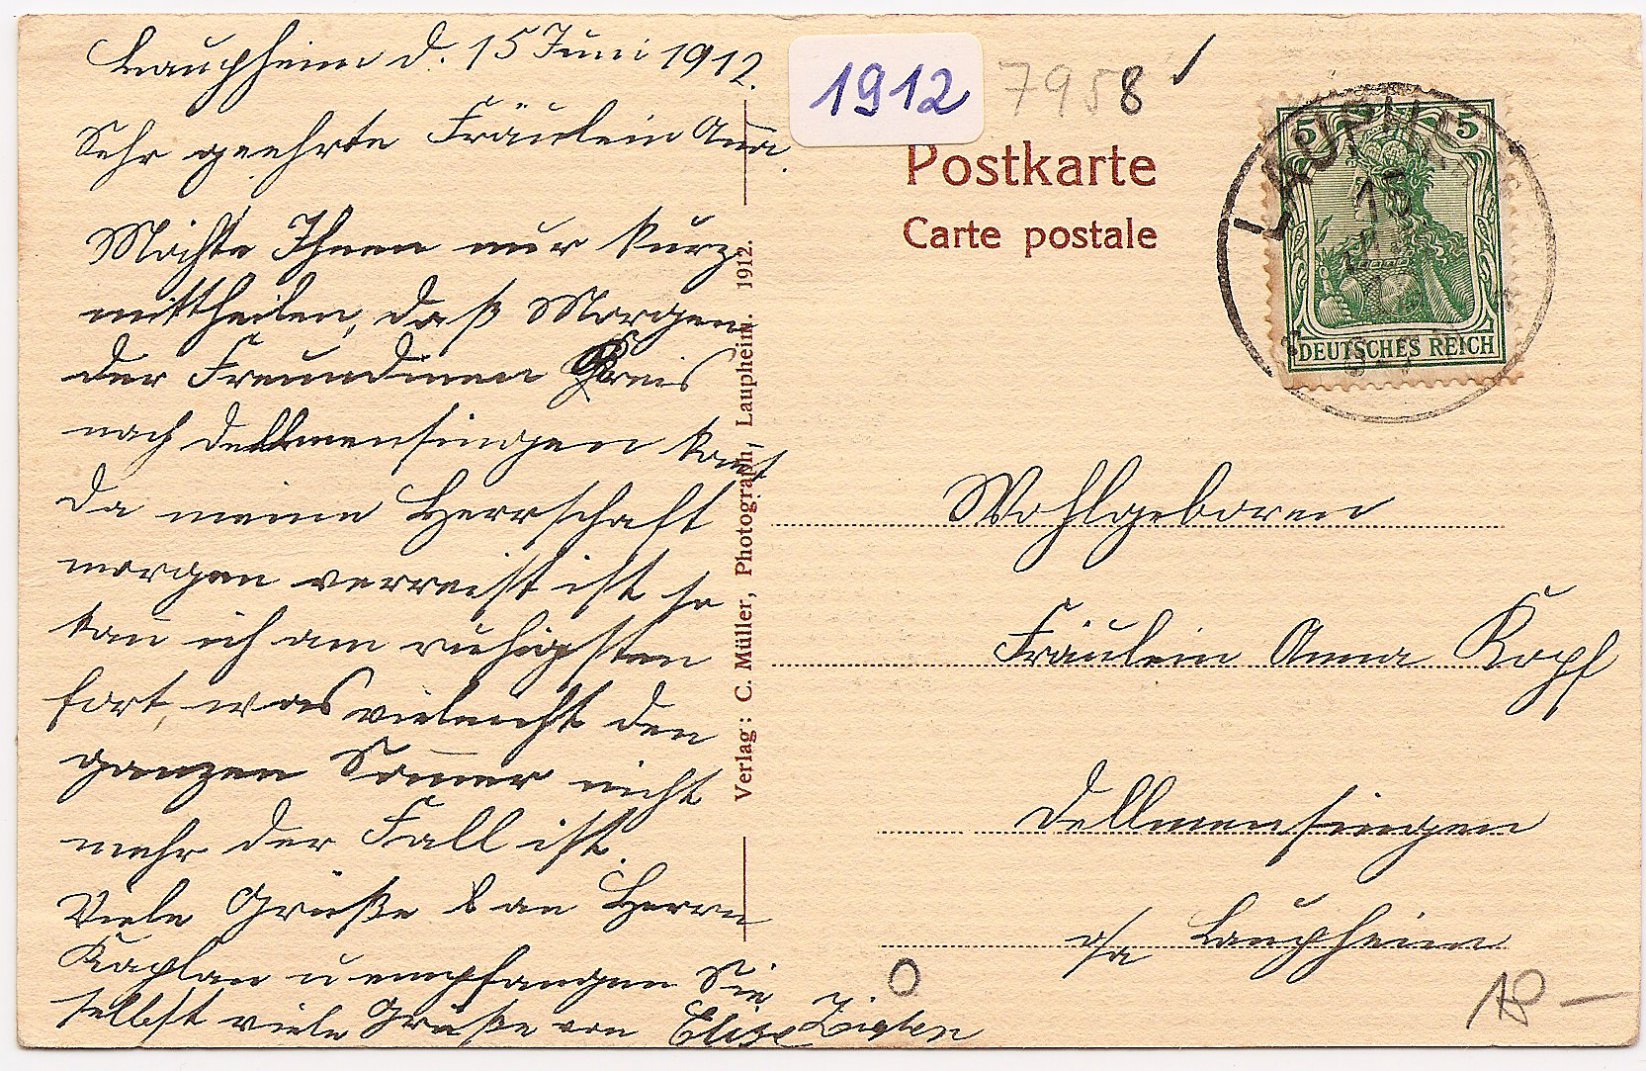 Laupheim d. 15 Juni 1912.
Sehr geehrte Fräulein Anna.
Möchte Ihnen nur kurz
mittheilen, daß Morgen
der Freundinen Kreis
nach Dellmensingen komt
da meine Herrschaft
morgen verreist ist so
kan ich am ruhigsten
fort, was vieleicht den
ganzen Somer nicht
mehr der Fall ist.
Viele Grüße an Herrn
Kaplan u empfangen Sie
selbst viele Grüße von Elise
1912
7958
Postkarte
Carte postale
Verlag: C. Müller, Photograph, Laupheim. 1912.
5 5
DEUTSCHES REICH
LAUPHEIM
15
Wohlgeboren
Fräulein Anna Kopf
Dellmensingen
o/a Laupheim